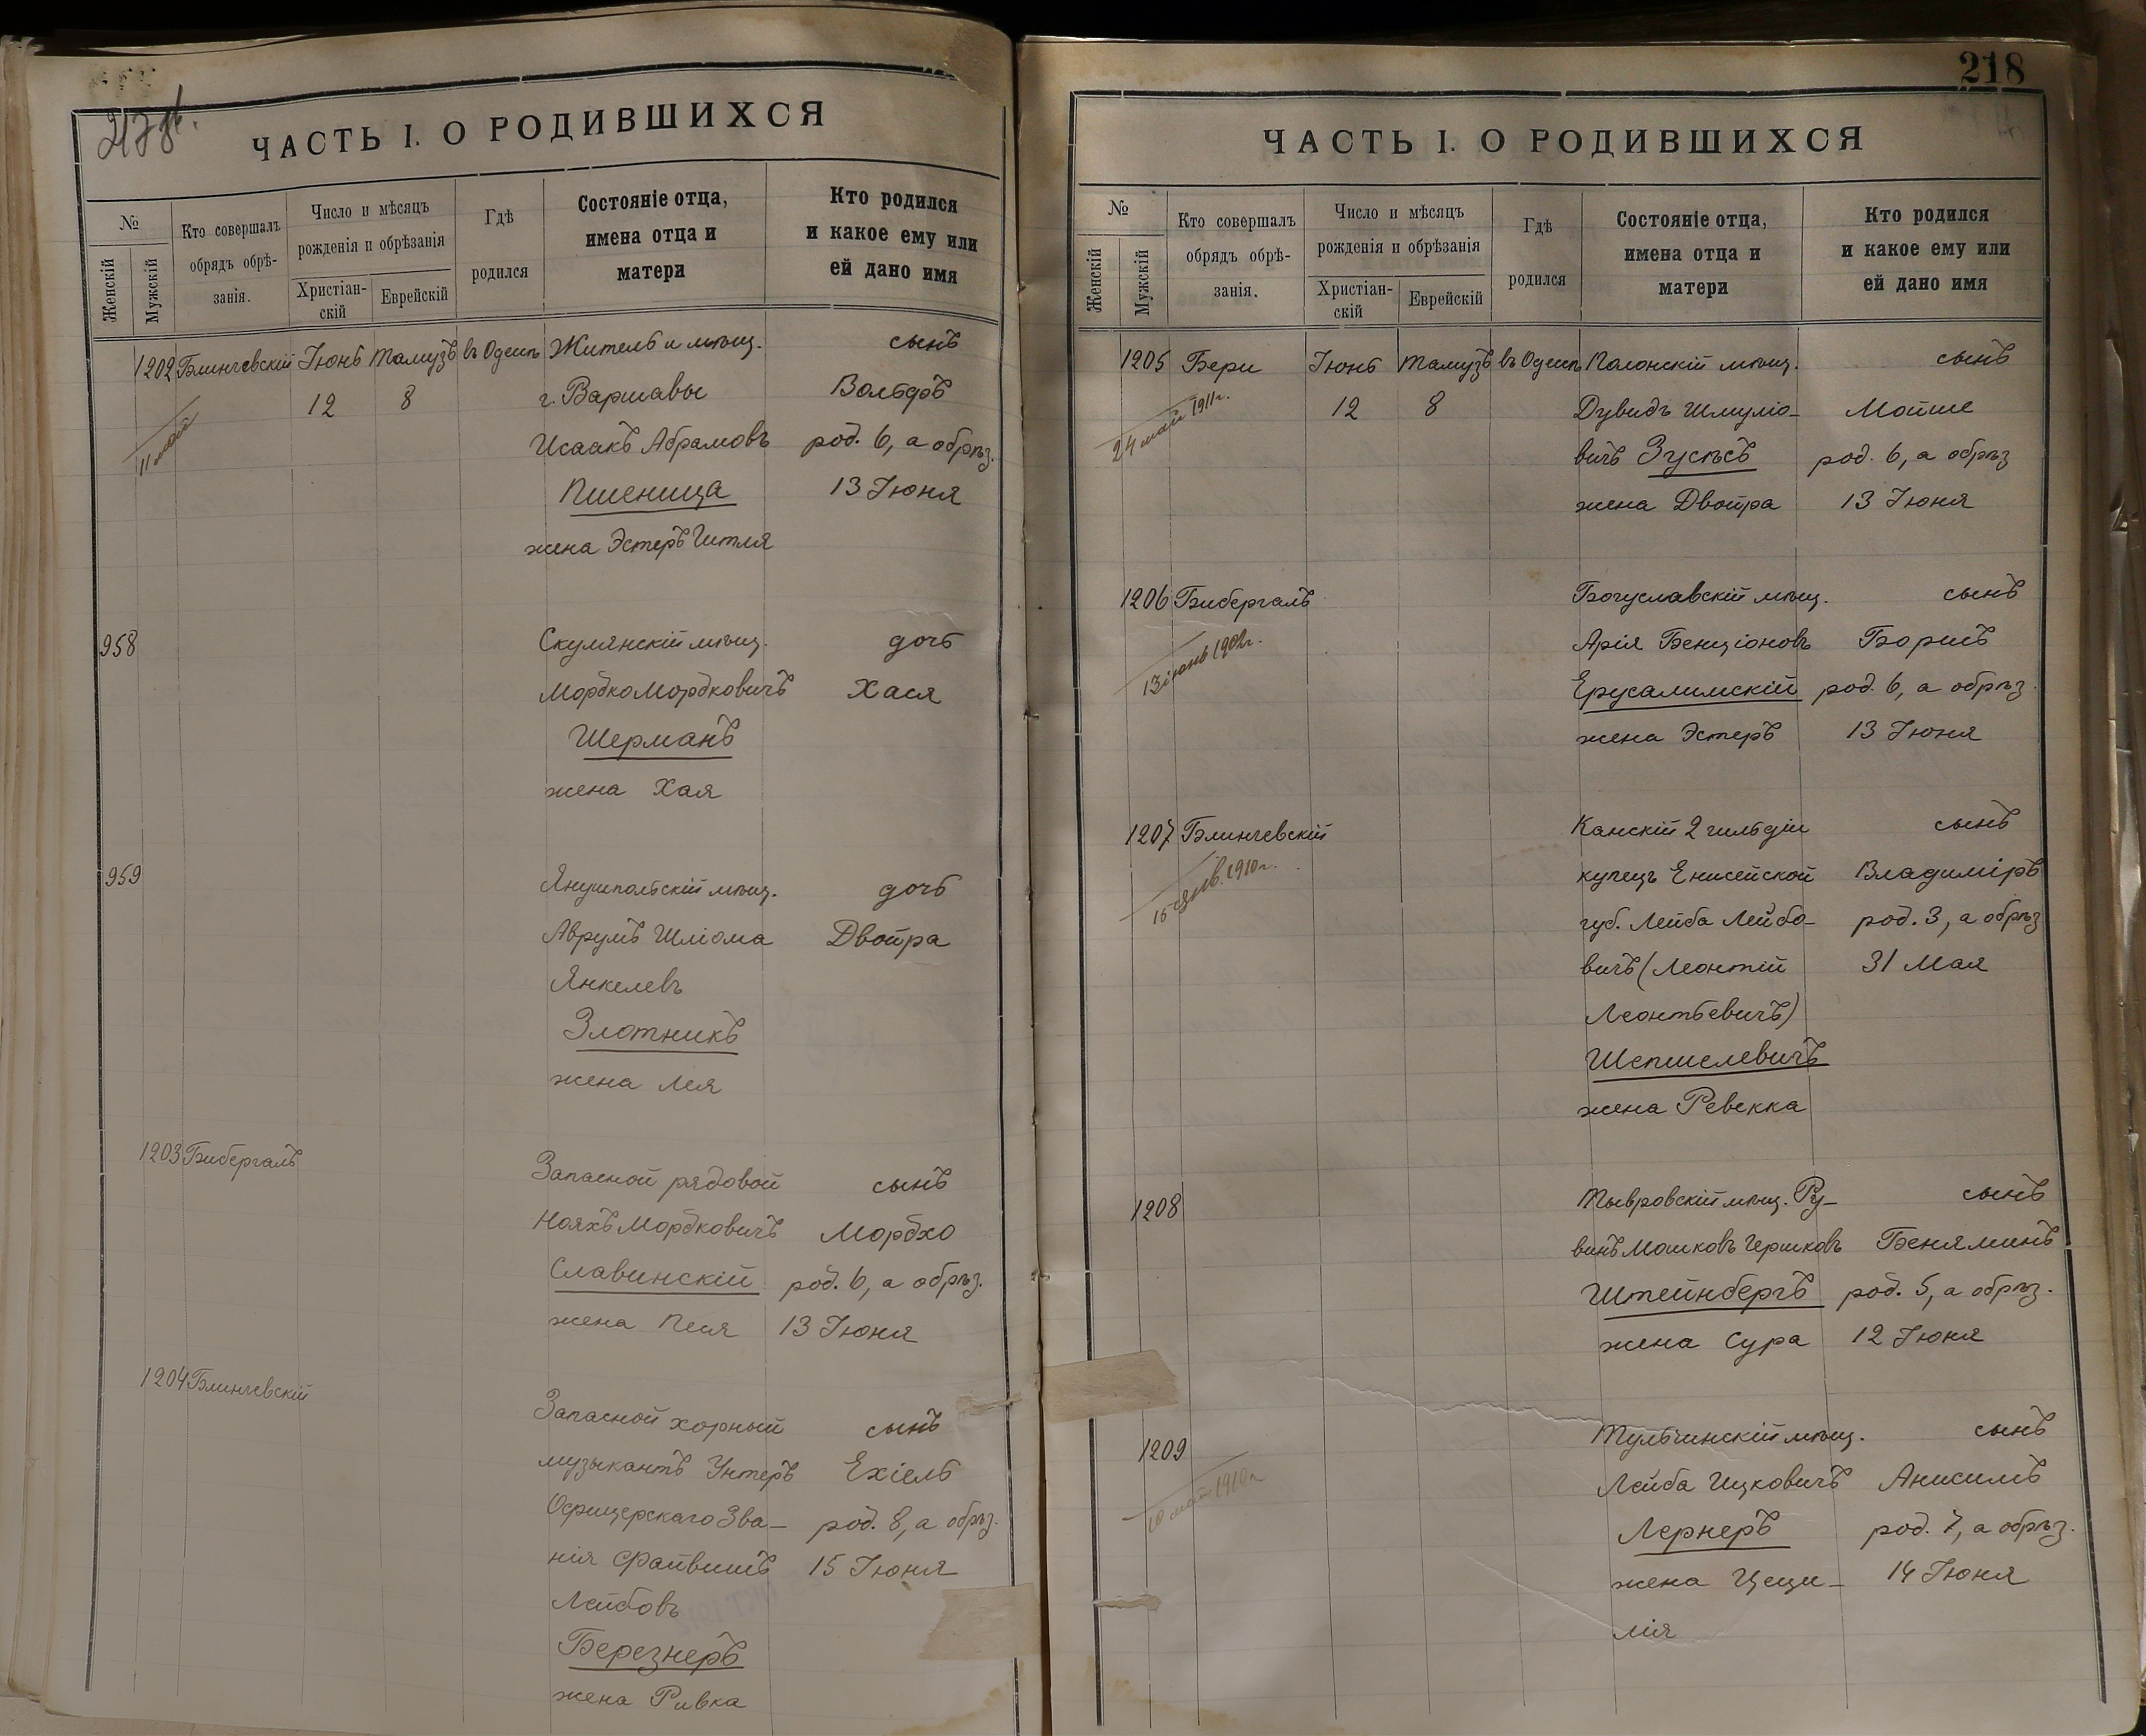 217 об.
ЧАСТЬ I. О РОДИВШИХСЯ
№
Женскій
Мужскій
Кто совершалъ
обрядъ обрѣ-
занія.
Число и мѣсяцъ
рожденія и обрѣзанія
Христіан-
скій
Еврейскій
Гдѣ
родился
Состояніе отца,
имена отца и
матери
Кто родился
и какое ему или
ей дано имя
1202 Блинчевскій Іюнь Тамузъ въ Одессѣ Житель и мѣщ. сынъ
12 8 г. Варшавы Вольфъ
11 май
Исаакъ Абрамовъ род. 6, а обрѣз.
Пшеница 13 Іюня
жена Эстеръ Гитля
958 Скулянскій мѣщ. дочь
Мордко Мордковичъ Хася
Шерманъ
жена Хая
959 Янушпольскій мѣщ. дочь
Аврумъ Шліома Двойра
Янкелевъ
Злотникъ
жена Лея
1203 Бибергалъ Запасной рядовой сынъ
Нояхъ Мордковичъ Мордхо
Славинскій род. 6, а обрѣз.
жена Песя 13 Іюня
1204 Блинчевскій Запасной хорный сынъ
музыкантъ Унтеръ Ехіель
Офицерскаго Зва- род. 8, а обрѣз.
нія Файвишъ 15 Іюня
Лейбовъ
Березнеръ
жена Ривка
218
ЧАСТЬ I. О РОДИВШИХСЯ
№
Женскій
Мужскій
Кто совершалъ
обрядъ обрѣ-
занія.
Число и мѣсяцъ
рожденія и обрѣзанія
Христіан-
скій
Еврейскій
Гдѣ
родился
Состояніе отца,
имена отца и
матери
Кто родился
и какое ему или
ей дано имя
1205 Бери Іюнь Тамузъ въ Одессѣ Полонскій мѣщ. сынъ
24 май 1911 г. 12 8 Дувидъ Шмуліо- Мойше
вичъ Зусьсъ род. 6, а обрѣз
жена Двойра 13 Іюня
1206 Бибергалъ Богуславскій мѣщ. сынъ
13 іюнь 1902 г. Арія Бенціоновъ Борисъ
Ерусалимскій род. 6, а обрѣз.
жена Эстеръ 13 Іюня
1207 Блинчевскій Канскій 2 гильдіи сынъ
15 янв. 1910 г. купецъ Енисейской Владиміръ
губ. Лейба Лейбо- род. 3, а обрѣз
вичъ (Леонтій 31 Мая
Леонтьевичъ)
Шепшелевичъ
жена Ревекка
1208 Тывровскій мѣщ. Ру- сынъ
винъ Мошковъ Гершковъ Беняминъ
Штейнбергъ род. 5, а обрѣз.
жена Сура 12 Іюня
1209 Тульчинскій мѣщ. сынъ
10 май 1910 г. Лейба Ицковичъ Анисимъ
Лернеръ род. 7, а обрѣз.
жена Цеци- 14 Іюня
лія